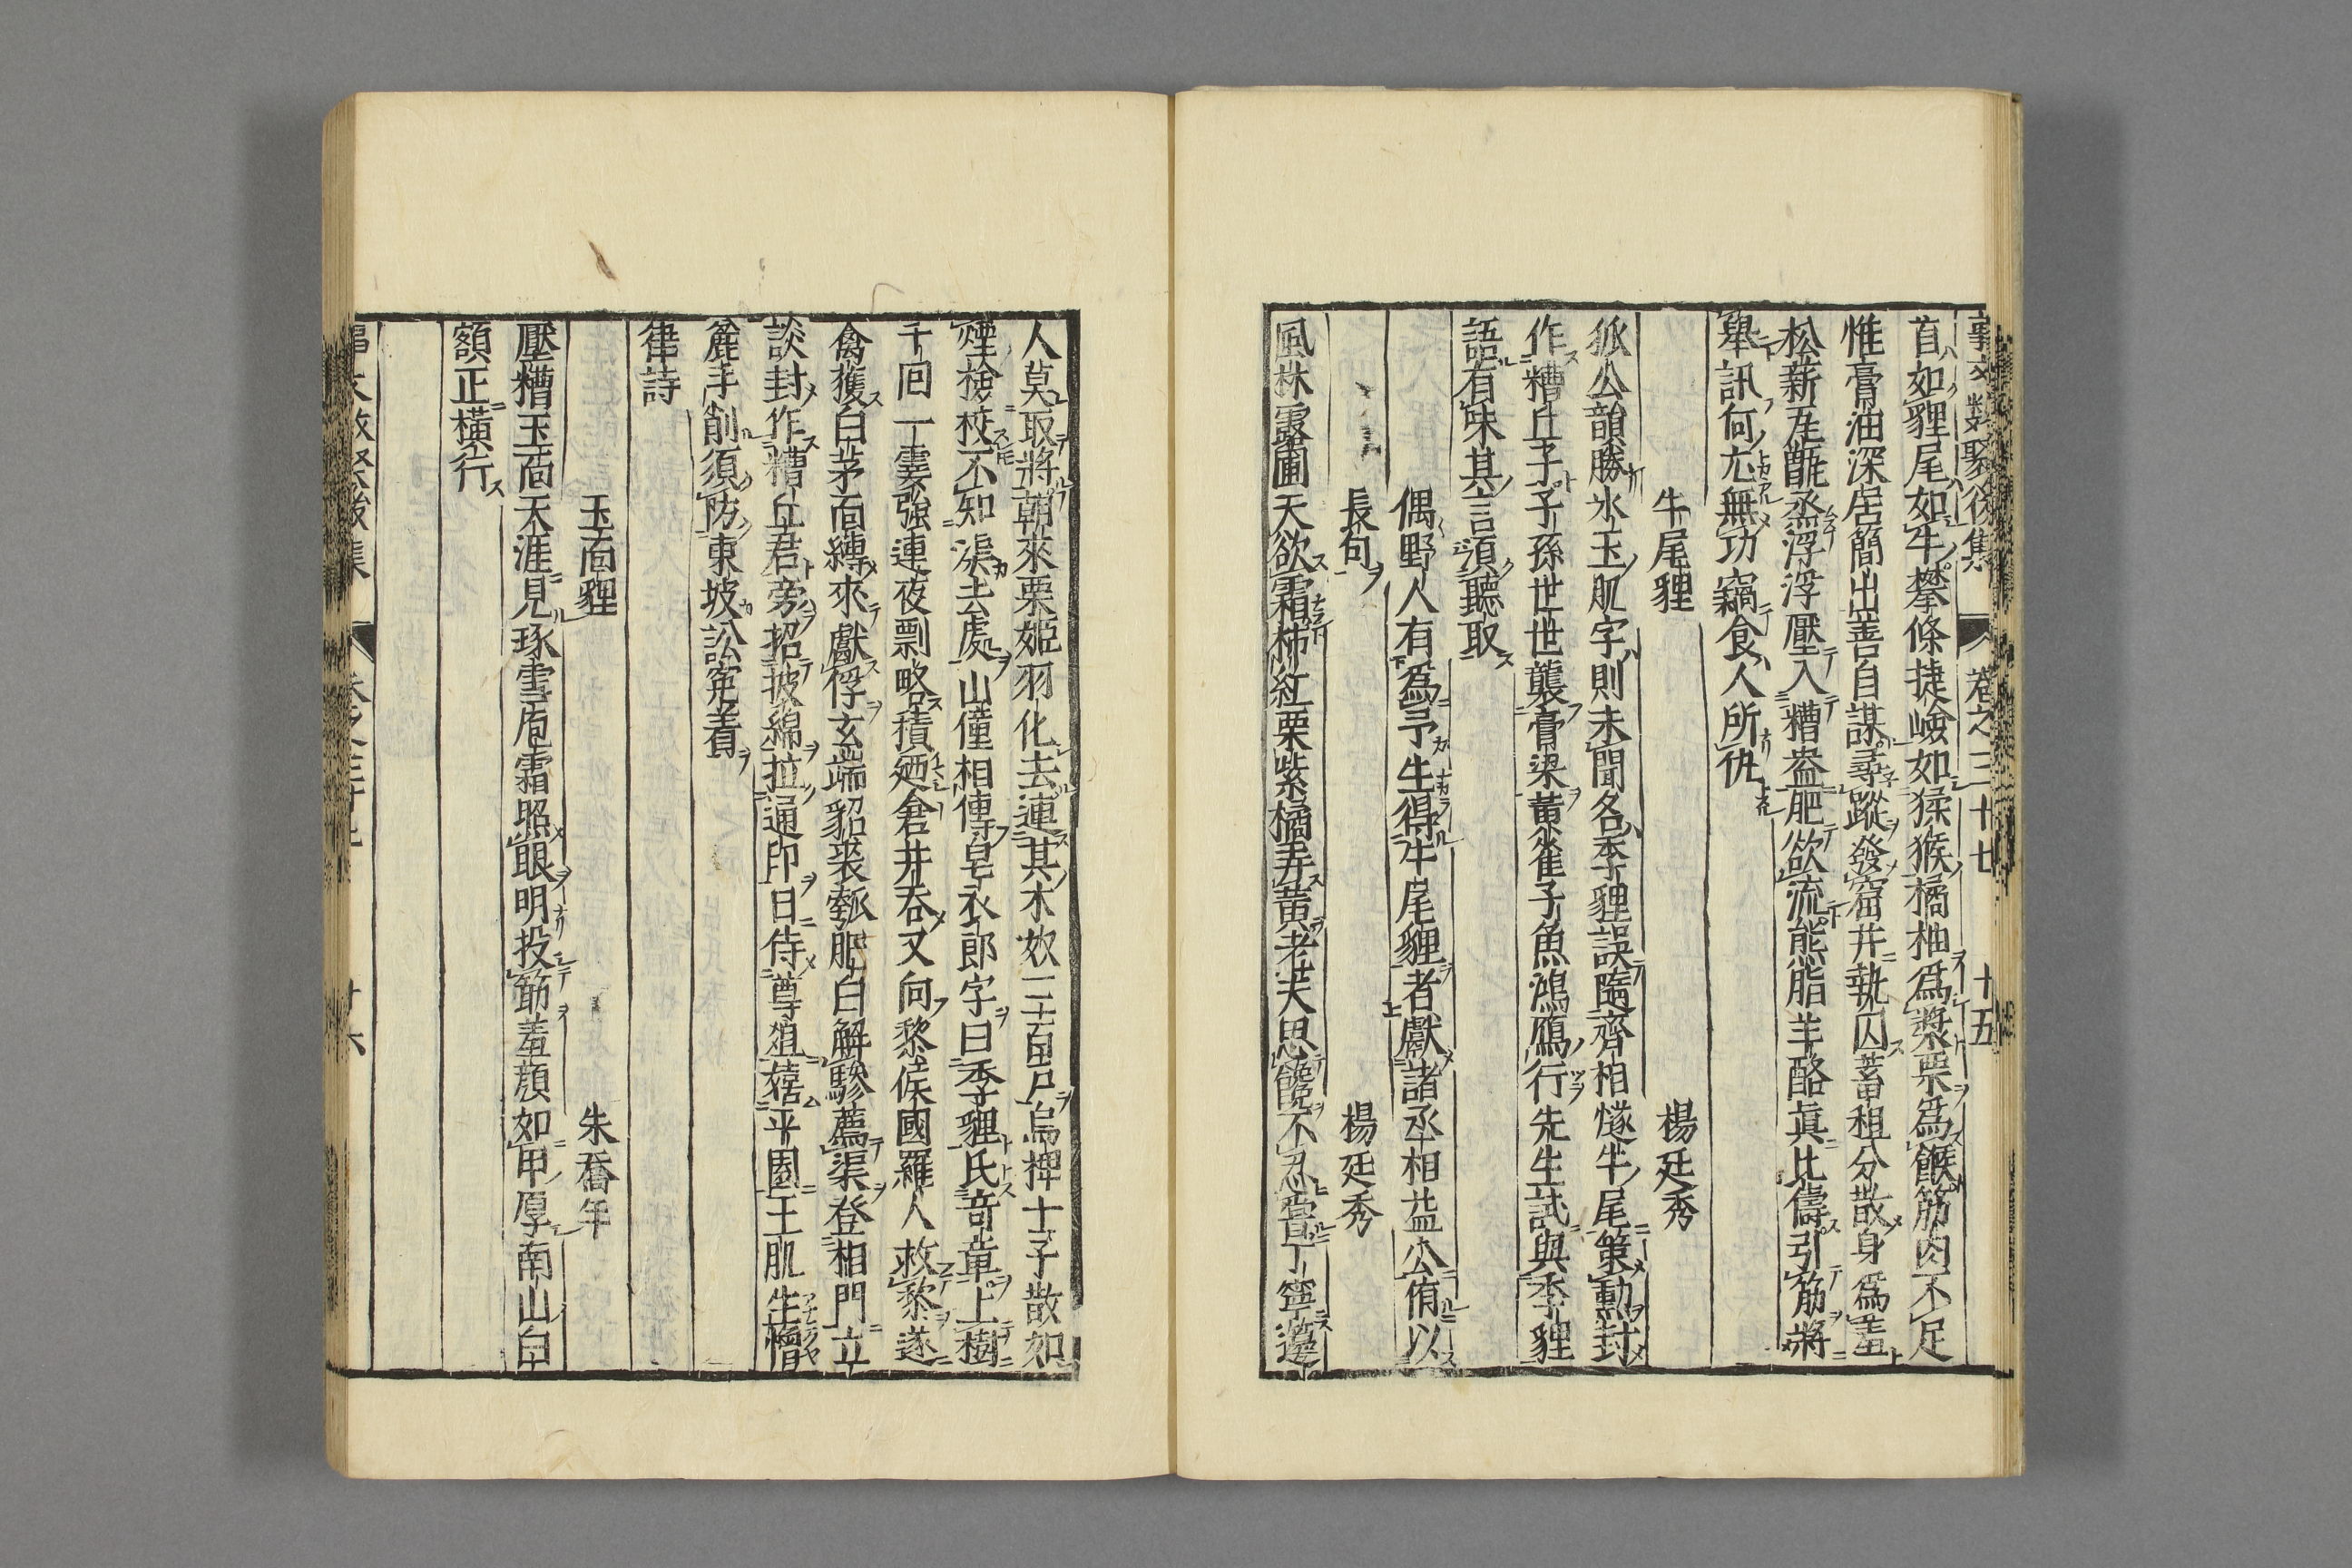 事文類聚後集 卷之三十七 十五
首如貍尾如牛攀條捷嶮如猱猴橘柚爲漿栗爲餱筋肉不足
惟膏油深居簡出善自謀尋蹤發窟并執囚蓄租分散身爲羞
松薪瓦甑烝浮浮壓入糟盎肥欲流熊脂羊酪眞比儔引筋將
舉訊何尤無功竊食人所仇
牛尾貍 楊廷秀
狐公韻勝氷玉肌字則未聞名季貍誤隨齊相燧牛尾策勳封
作糟丘子子孫世世襲膏粱黃雀子魚鴻鴈行先生試與季貍
語有味其言須聽取
偶野人有爲予生得牛尾貍者獻諸丞相益公侑以
長句 楊廷秀
風林露圃天欲霜柿紅栗紫橘弄黃老夫思饞不忍嘗丁寧邊
人莫取將朝來栗姬羽化去連其木奴三百戶烏椑十子散如
煙檢校不知渠去處山僮相傳皂衣郎字曰季貍氏奇章上樹
千回一霎強連夜剽略積廼倉并吞又向黎侯國羅人救黎遂
禽獲白茅面縛來獻俘玄端貂裘瓠肥白解驂薦渠登相門立
談封作糟丘君旁招披綿拉通印日侍尊俎嬉平園玉肌生憎
麄手削須防東坡訟寃着
律詩
玉面貍 朱喬年
壓糟玉面天涯見琢雪庖霜照眼明投筯羞顔如甲厚南山白
額正橫行
卷之三十七 十六